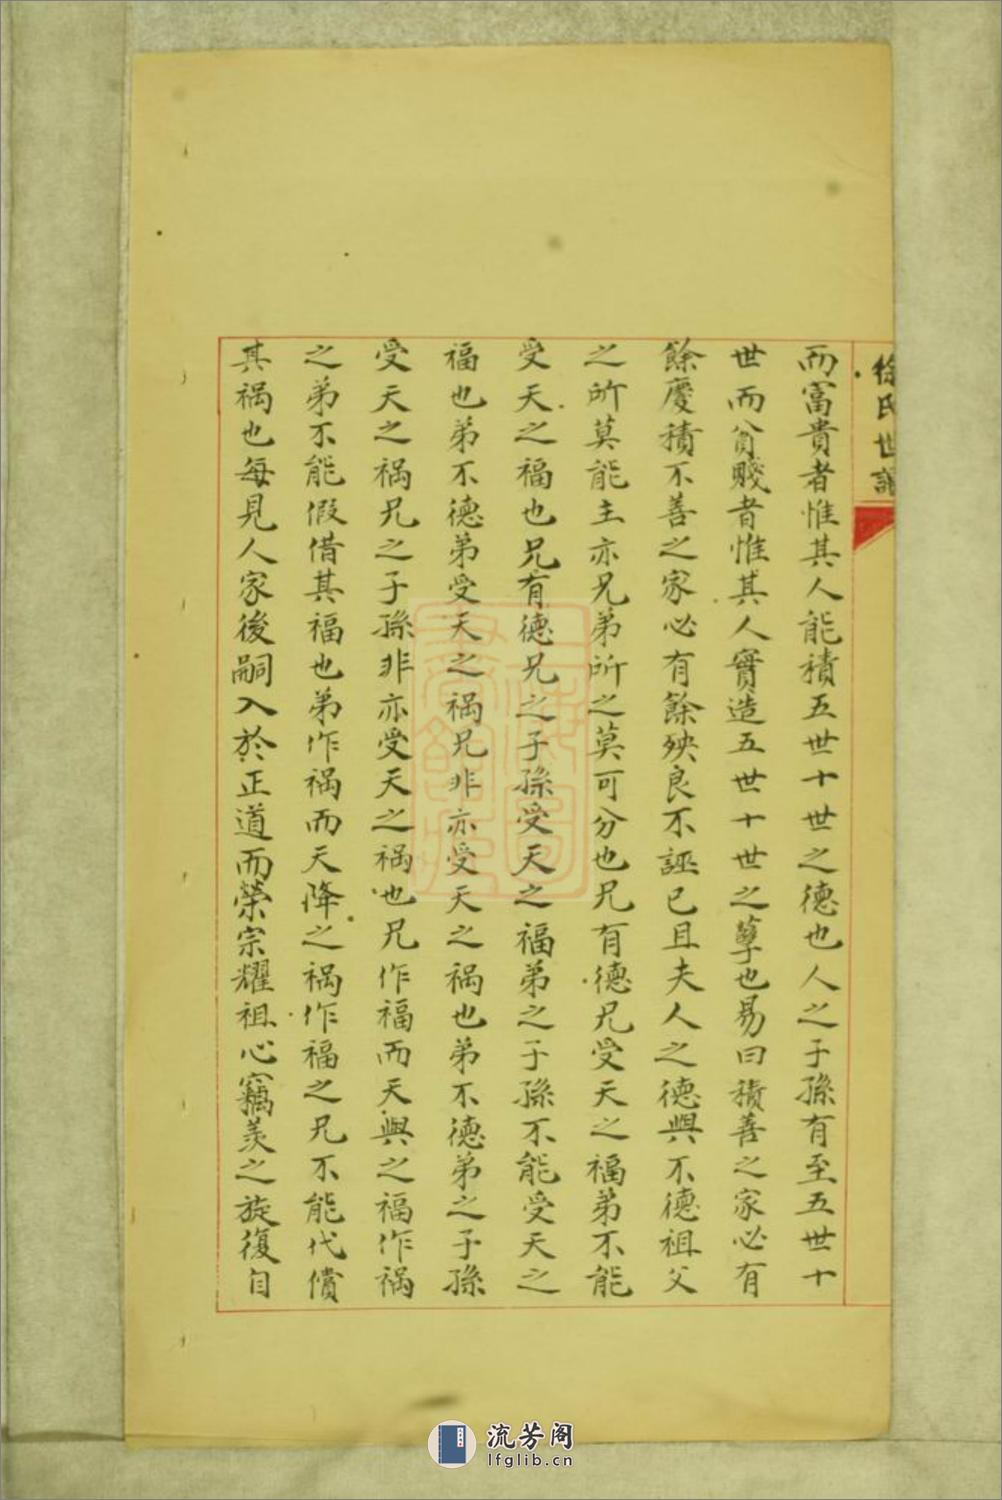 徐氏世譜
而富貴者惟其人能積五世十世之德也人之子孫有至五世十
世而貧賤者惟其人實造五世十世之孽也易曰積善之家必有
餘慶積不善之家必有餘殃良不誣已且夫人之德與不德祖父
之所莫能主亦兄弟所之莫可分也兄有德兄受天之福弟不能
受天之福也兄有德兄之子孫受天之福弟之子孫不能受天之
福也弟不德弟受天之禍兄非亦受天之禍也弟不德弟之子孫
受天之禍兄之子孫非亦受天之禍也兄作福而天與之福作禍
之弟不能假借其福也弟作禍而天降之禍作福之兄不能代償
其禍也每見人家後嗣入於正道而榮宗耀祖心竊羨之旋復自
流芳阁
lfglib.cn